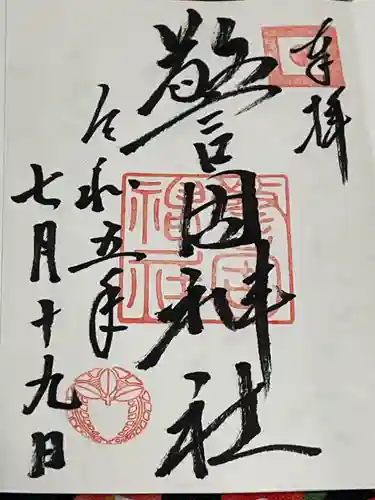 奉拝
警固神社
令和五年
七月十九日